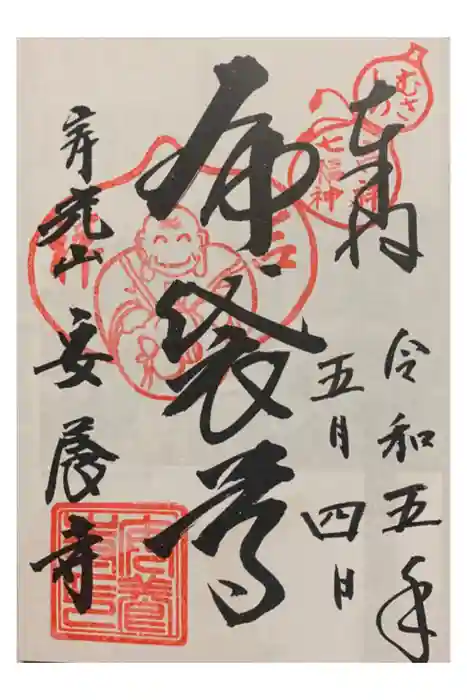 奉拝
令和五年
五月四日
むさしの
七福神
布袋尊
安養寺